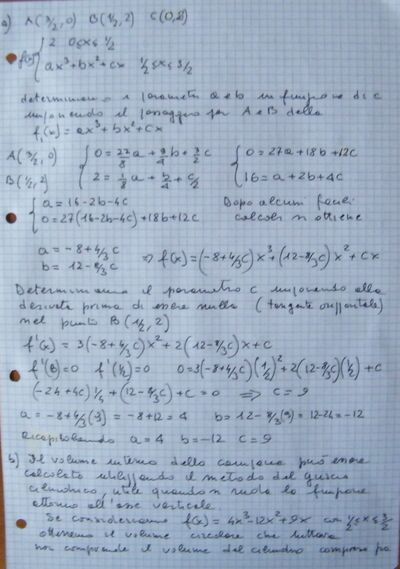 a) A(3/2, 0) B(1/2, 2) C(0,2)
f(x) = { 2 0≤x≤1/2
ax³+bx²+cx 1/2≤x≤3/2
determiniamo i parametri a e b in funzione di c
imponendo il passaggio per A e B della
f₁(x) = ax³+bx²+cx
A(3/2, 0) { 0 = 27/8 a + 9/4 b + 3/2 c { 0 = 27a + 18b + 12c
B(1/2, 2) 2 = 1/8 a + b/4 + c/2 16 = a + 2b + 4c
{ a = 16-2b-4c Dopo alcuni facili
0 = 27(16-2b-4c) + 18b + 12c calcoli si ottiene
a = -8 + 4/3 c
b = 12 - 8/3 c ⇒ f(x) = (-8+4/3 c)x³ + (12-8/3 c)x² + cx
Determiniamo il parametro c imponendo alla
derivata prima di essere nulla (tangente orizzontale)
nel punto B(1/2, 2)
f'(x) = 3(-8+4/3 c)x² + 2(12-8/3 c)x + c
f'(B)=0 f'(1/2)=0 0=3(-8+4/3 c)(1/2)² + 2(12-8/3 c)(1/2) + c
(-24+4c)1/4 + (12-8/3 c) + c = 0 ⇒ c = 9
a = -8+4/3(9) = -8+12 = 4 b = 12-8/3(9) = 12-24 = -12
Ricapitolando a = 4 b = -12 c = 9
b) Il volume interno della campana può essere
calcolato utilizzando il metodo del guscio
cilindrico, utile quando si ruota la funzione
attorno all'asse verticale
Se consideriamo f(x) = 4x³-12x²+9x con 1/2≤x≤3/2
otteniamo il volume circolare che tuttavia
non comprende il volume del cilindro compreso